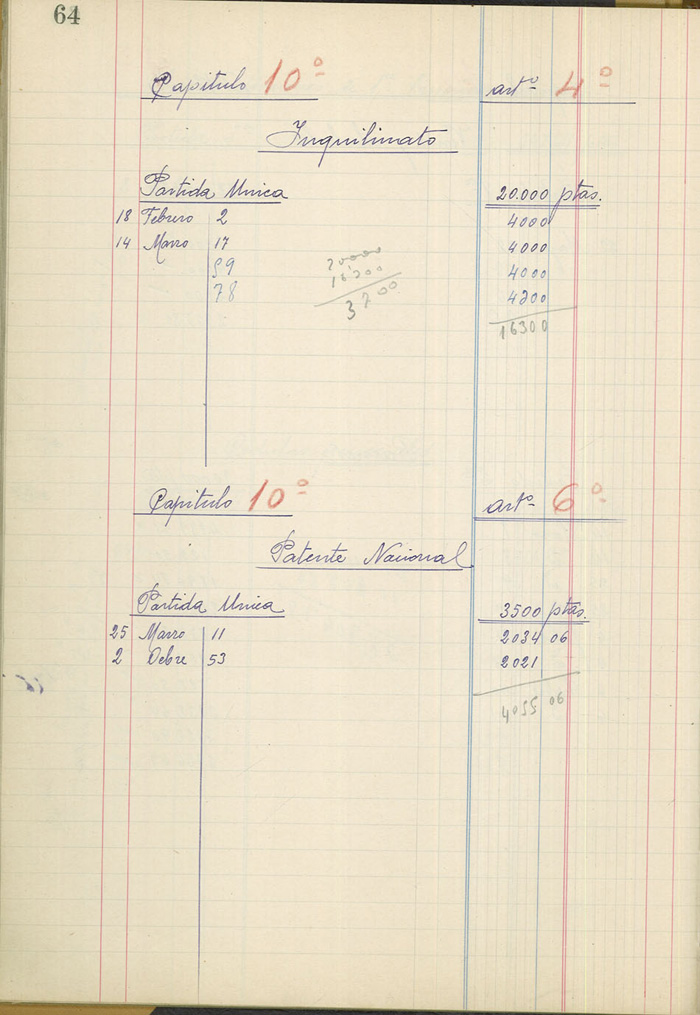 64
Capitulo 10º artº 4º
Inquilinato
Partida Unica 20.000 ptas.
18 Febrero 2 4000
14 Marzo 17 4000
59 20000 4000
78 16300 4300
3700 16300
Capitulo 10º artº 6º
Patente Nacional
Partida Unica 3500 ptas.
25 Marzo 11 2034 06
2 Ocbre 53 2021
4055 06